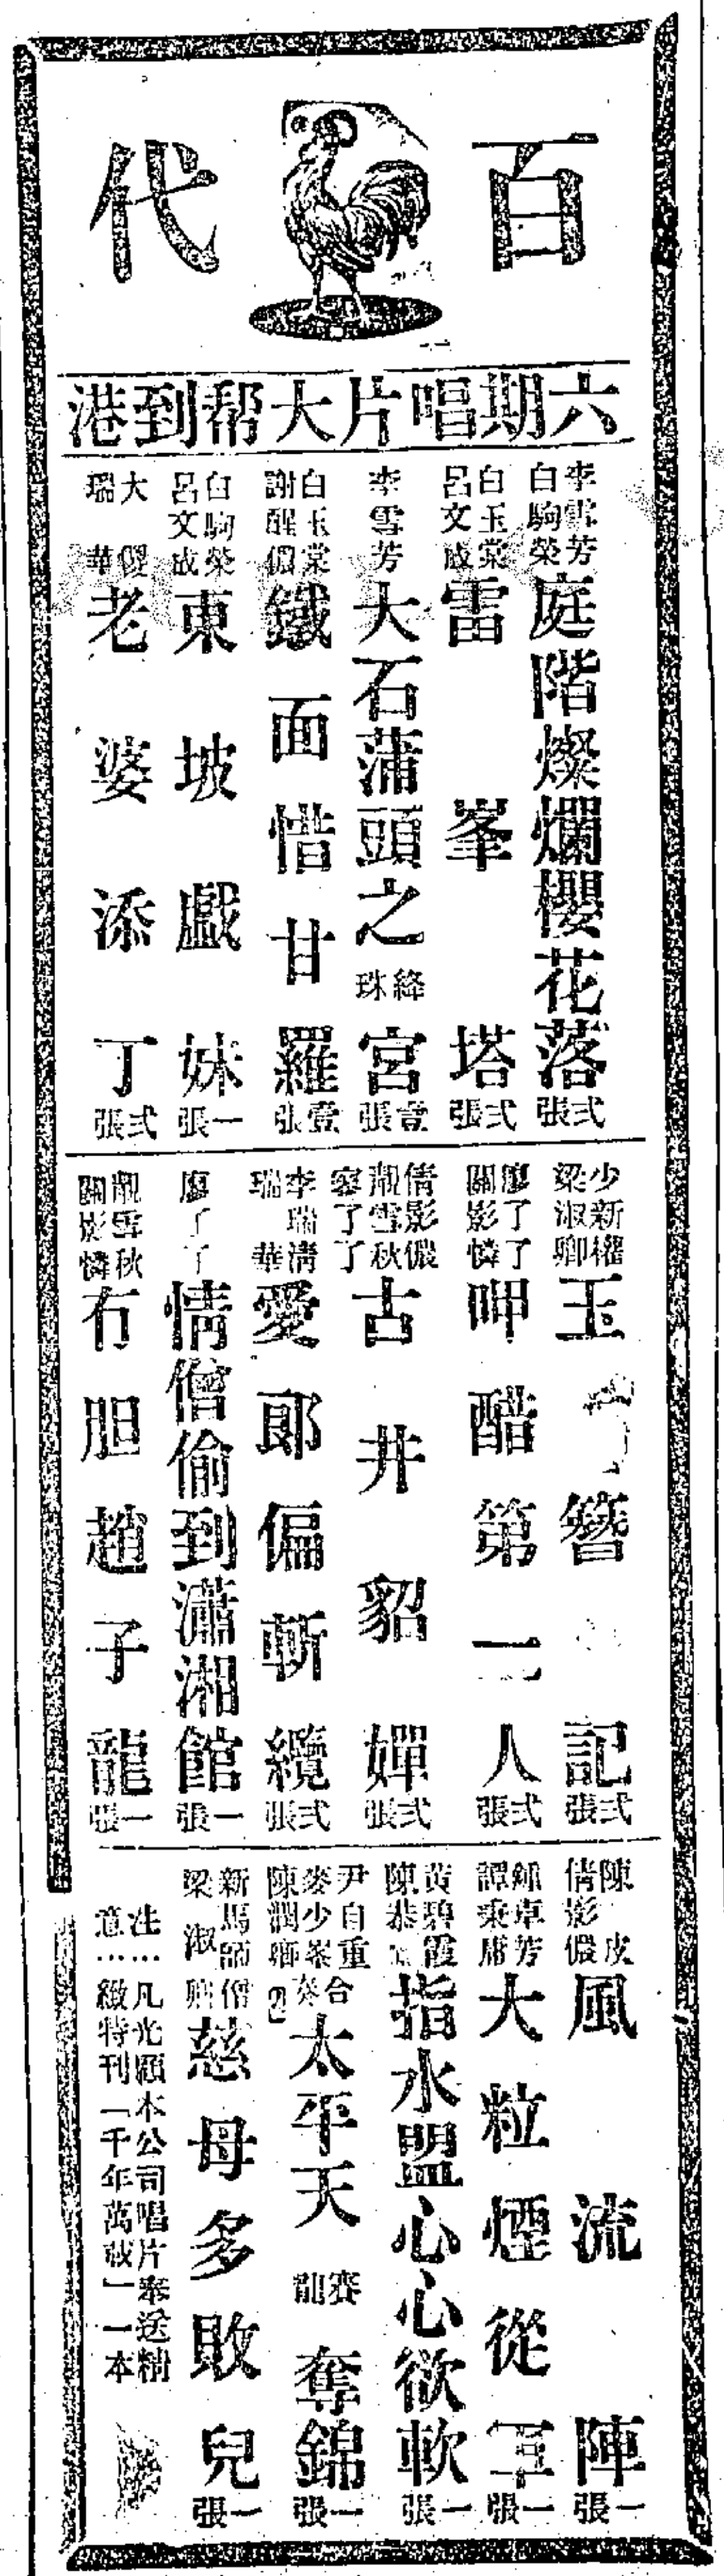 百代
六期唱片大幫到港
李雪芳 白駒榮 庭階燦爛櫻花落 弍張
白玉棠 呂文成 雷峯塔 弍張
李雪芳 大石蒲頭之絳珠宮 壹張
白玉棠 謝醒儂 鐵面惜甘羅 壹張
白駒榮 呂文成 東坡戲妹 一張
大傻 瑞華 老婆添丁 弍張
少新權 梁淑卿 玉簪記 弍張
廖了了 關影憐 呷醋第一人 弍張
倩影儂 靚雪秋 廖了了 古井貂嬋 弍張
李瑞清 瑞華 愛郎偏斬纜 弍張
廖了了 情僧偷到瀟湘館 一張
靚雪秋 關影憐 冇胆趙子龍 一張
陳皮 倩影儂 風流陣 一張
鍾卓芳 譚秉庸 大粒煙從軍 一張
黃碧霞 陳恭 指水盟心心欲軟 一張
尹自重 麥少峯 陳潤 合奏 太平天 賽龍奪錦 一張
新馬師僧 梁淑卿 慈母多敗兒 一張
注…凡光顧本公司唱片奉送精
意…緻特刊「千年萬載」一本